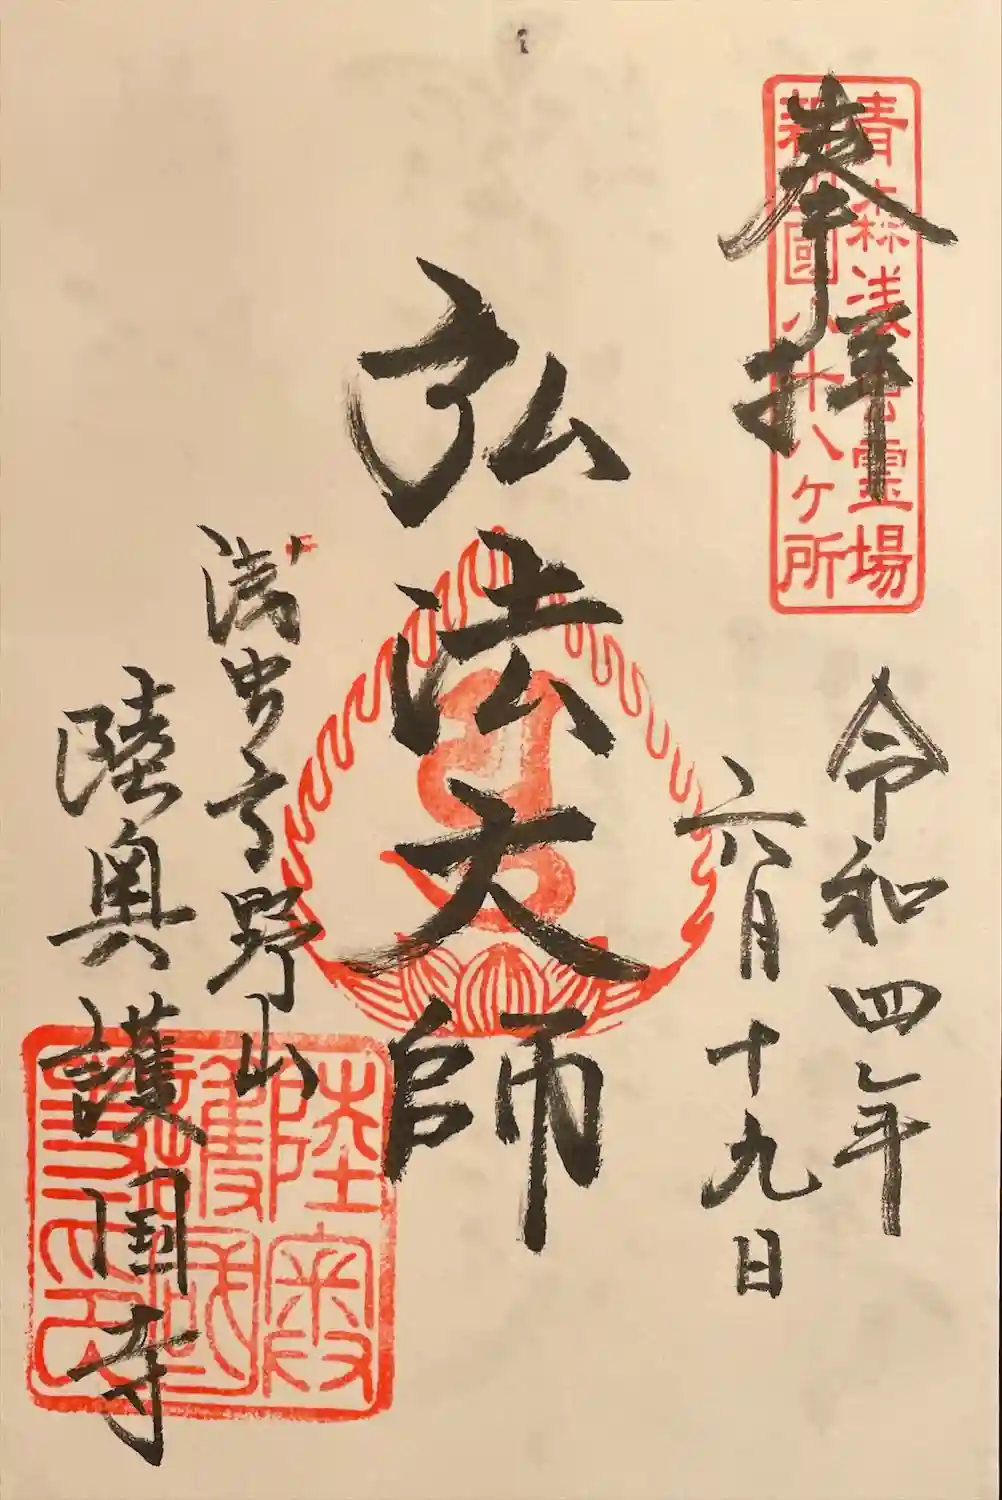 奉拝
青森浅虫霊場
新四国八十八ヶ所
令和四年
六月十九日
弘法大師
浅虫高野山
陸奥護国寺
陸奥護国寺